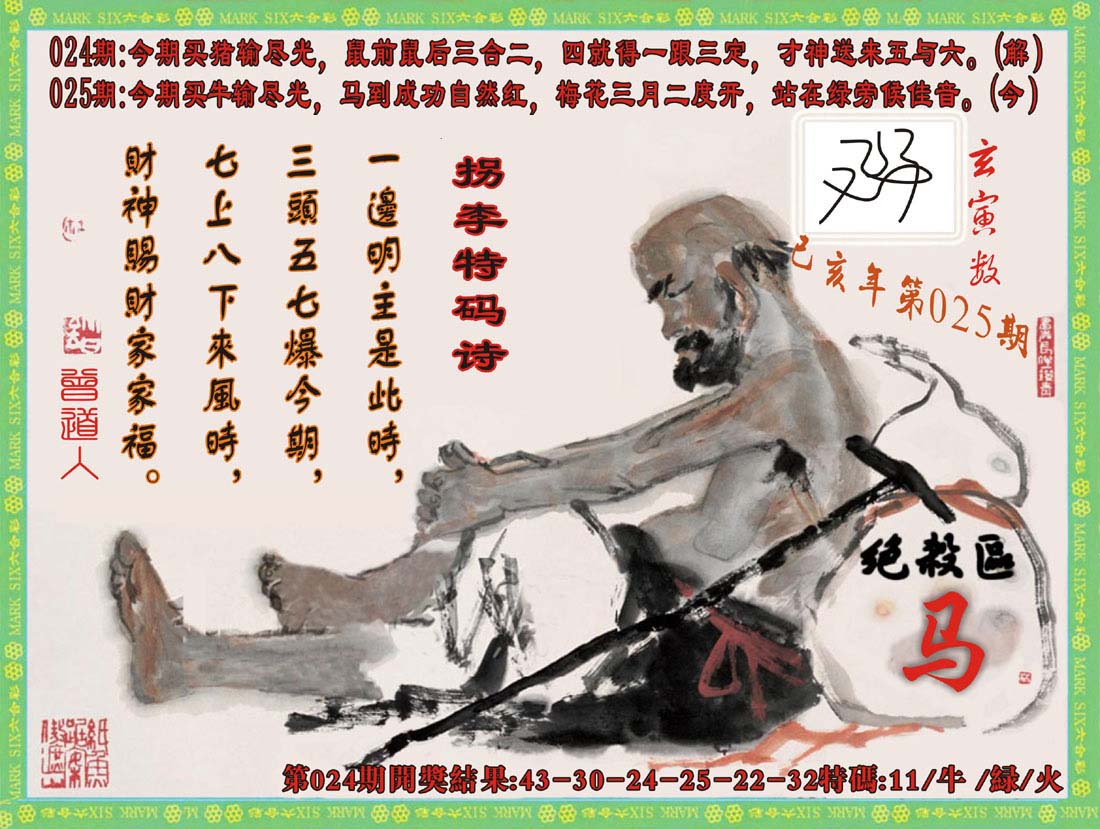 MARK SIX六合彩
024期:今期买猪输尽光，鼠前鼠后三合二，四就得一跟三定，才神送来五与六。(解)
025期:今期买牛输尽光，马到成功自然红，梅花三月二度开，站在绿旁侯佳音。(今)
玄寅数
己亥年第025期
拐李特码诗
一邊明主是此時，
三頭五七爆今期，
七上八下來風時，
財神賜財家家福。
曾道人
绝殺區
马
第024期開獎結果:43-30-24-25-22-32特碼:11/牛 /緑/火